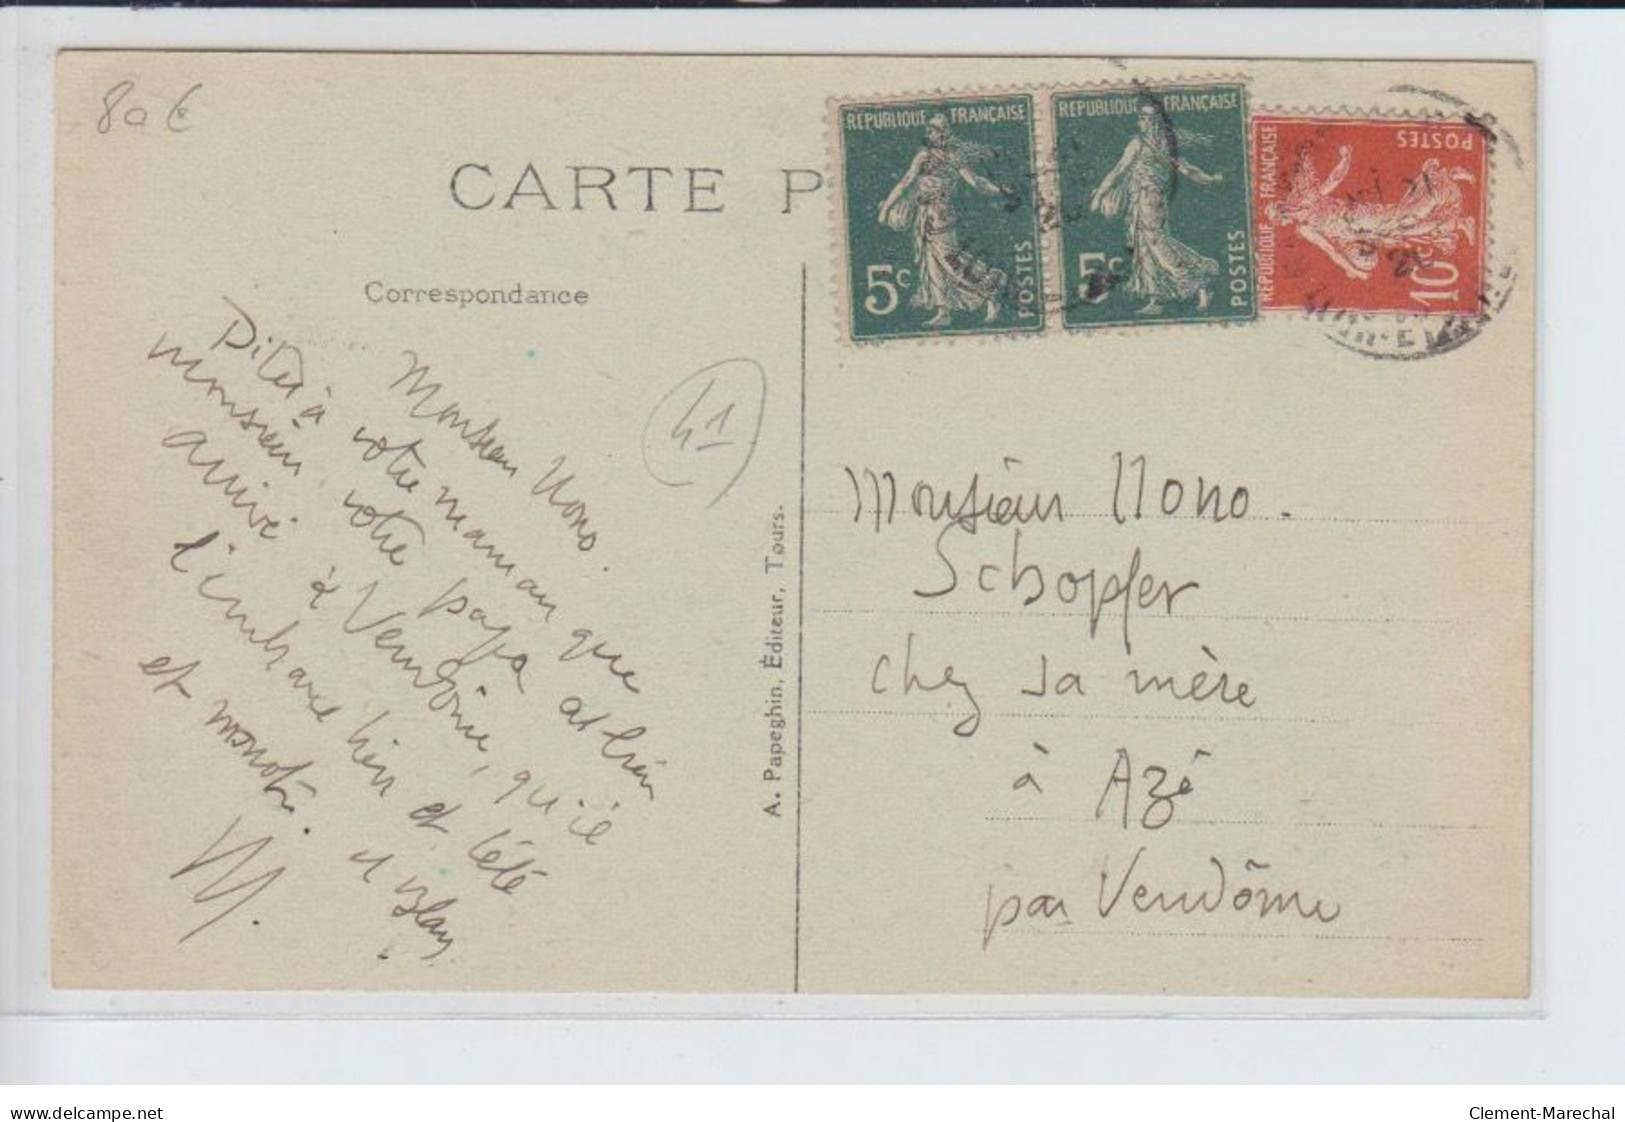 80 €
CARTE P
Correspondance
RÉPUBLIQUE FRANÇAISE
5c POSTES
RÉPUBLIQUE FRANÇAISE
5c POSTES
RÉPUBLIQUE FRANÇAISE
10c POSTES
41
Monsieur Nono.
Dites à votre maman que
monsieur votre papa est bien
arrivé à Vendôme, qu'il
l'embrasse bien et
et
M.
A. Papeghin, Éditeur, Tours.
Monsieur Nono.
Schopfer
chez sa mère
à Azé
par Vendôme
www.delcampe.net
Clement-Marechal